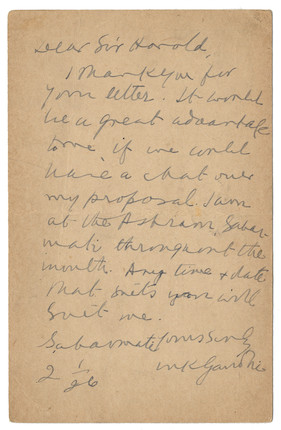 Dear Sir Harold,
I thank you for
your letter. It would
be a great advantage
to me, if we could
have a chat over
my proposal. I am
at the Ashram, Sabar-
mati throughout the
month. Any time & date
that suits you will
suit me.
Sabarmati Yours sincly
2/1/26 MKGandhi